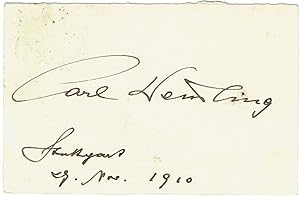 Carl Wendling
Stuttgart
29. Nov. 1910